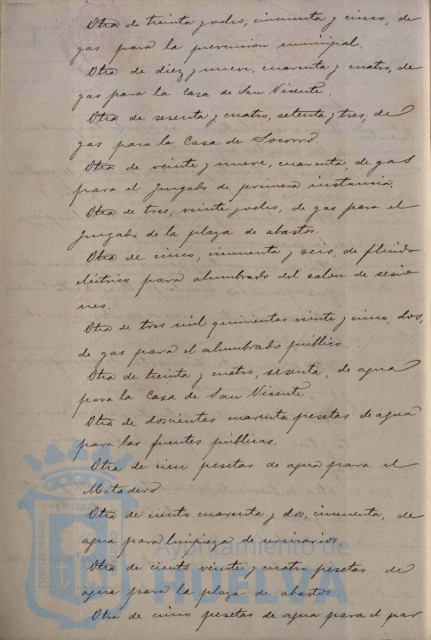 Otra de treinta y ocho, cincuenta y cinco, de
gas para la prevencion municipal.
Otra de diez y nueve, cuarenta y cuatro, de
gas para la Casa de San Vicente.
Otra de sesenta y cuatro, setenta y tres, de
gas para la Casa de Socorro
Otra de veinte y nueve, cuarenta de gas
para el Juzgado de primera instancia.
Otra de tres, veinte y ocho, de gas para el
Juzgado de la plaza de abastos.
Otra de cinco, cincuenta y seis, de fluido
eléctrico para alumbrado del salon de sesio
nes.
Otra de tres mil quinientas veinte y cinco, dos,
de gas para el alumbrado público.
Otra de treinta y cuatro, sesenta, de agua
para la Casa de San Vicente.
Otra de doscientas cuarenta pesetas de agua
para las fuentes publicas.
Otra de cien pesetas de agua para el
Matadero
Otra de ciento cuarenta y dos, cincuenta, de
agua para limpieza de urinarios
Otra de ciento veinte y cuatro pesetas de
agua para la plaza de abastos
Otra de cinco pesetas de agua para el par
Ayuntamiento de
HUELVA